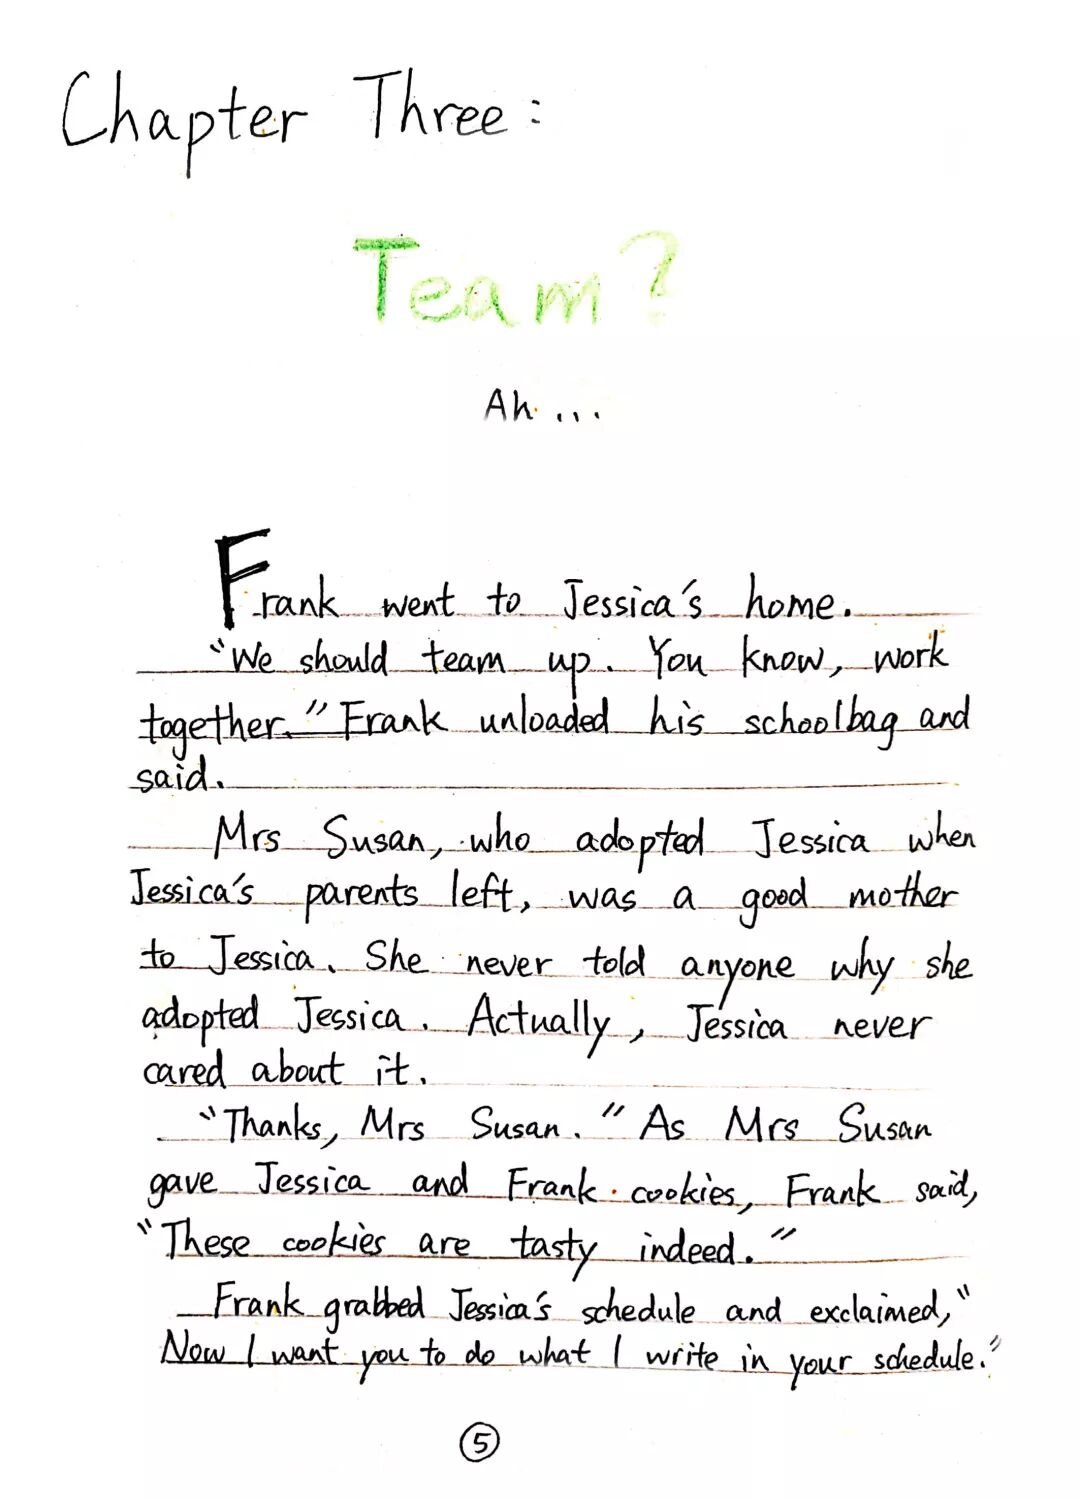 Chapter Three:
Team?
Ah...
Frank went to Jessica's home.
"We should team up. You know, work
together." Frank unloaded his schoolbag and
said.
Mrs Susan, who adopted Jessica when
Jessica's parents left, was a good mother
to Jessica. She never told anyone why she
adopted Jessica. Actually, Jessica never
cared about it.
"Thanks, Mrs Susan." As Mrs Susan
gave Jessica and Frank cookies, Frank said,
"These cookies are tasty indeed."
Frank grabbed Jessica's schedule and exclaimed,"
Now I want you to do what I write in your schedule."
5